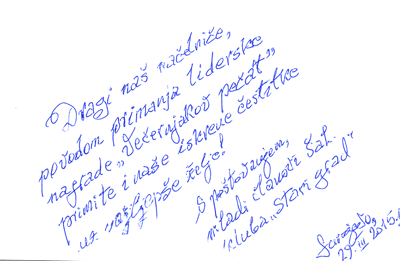 Dragi naš načelniče,
povodom primanja liderske
nagrade „Večernjakov pečat"
primite i naše iskrene čestitke
uz najljepše želje!
S poštovanjem,
mladi članovi šah.
kluba „Stari grad"
Sarajevo,
29. III 2015.